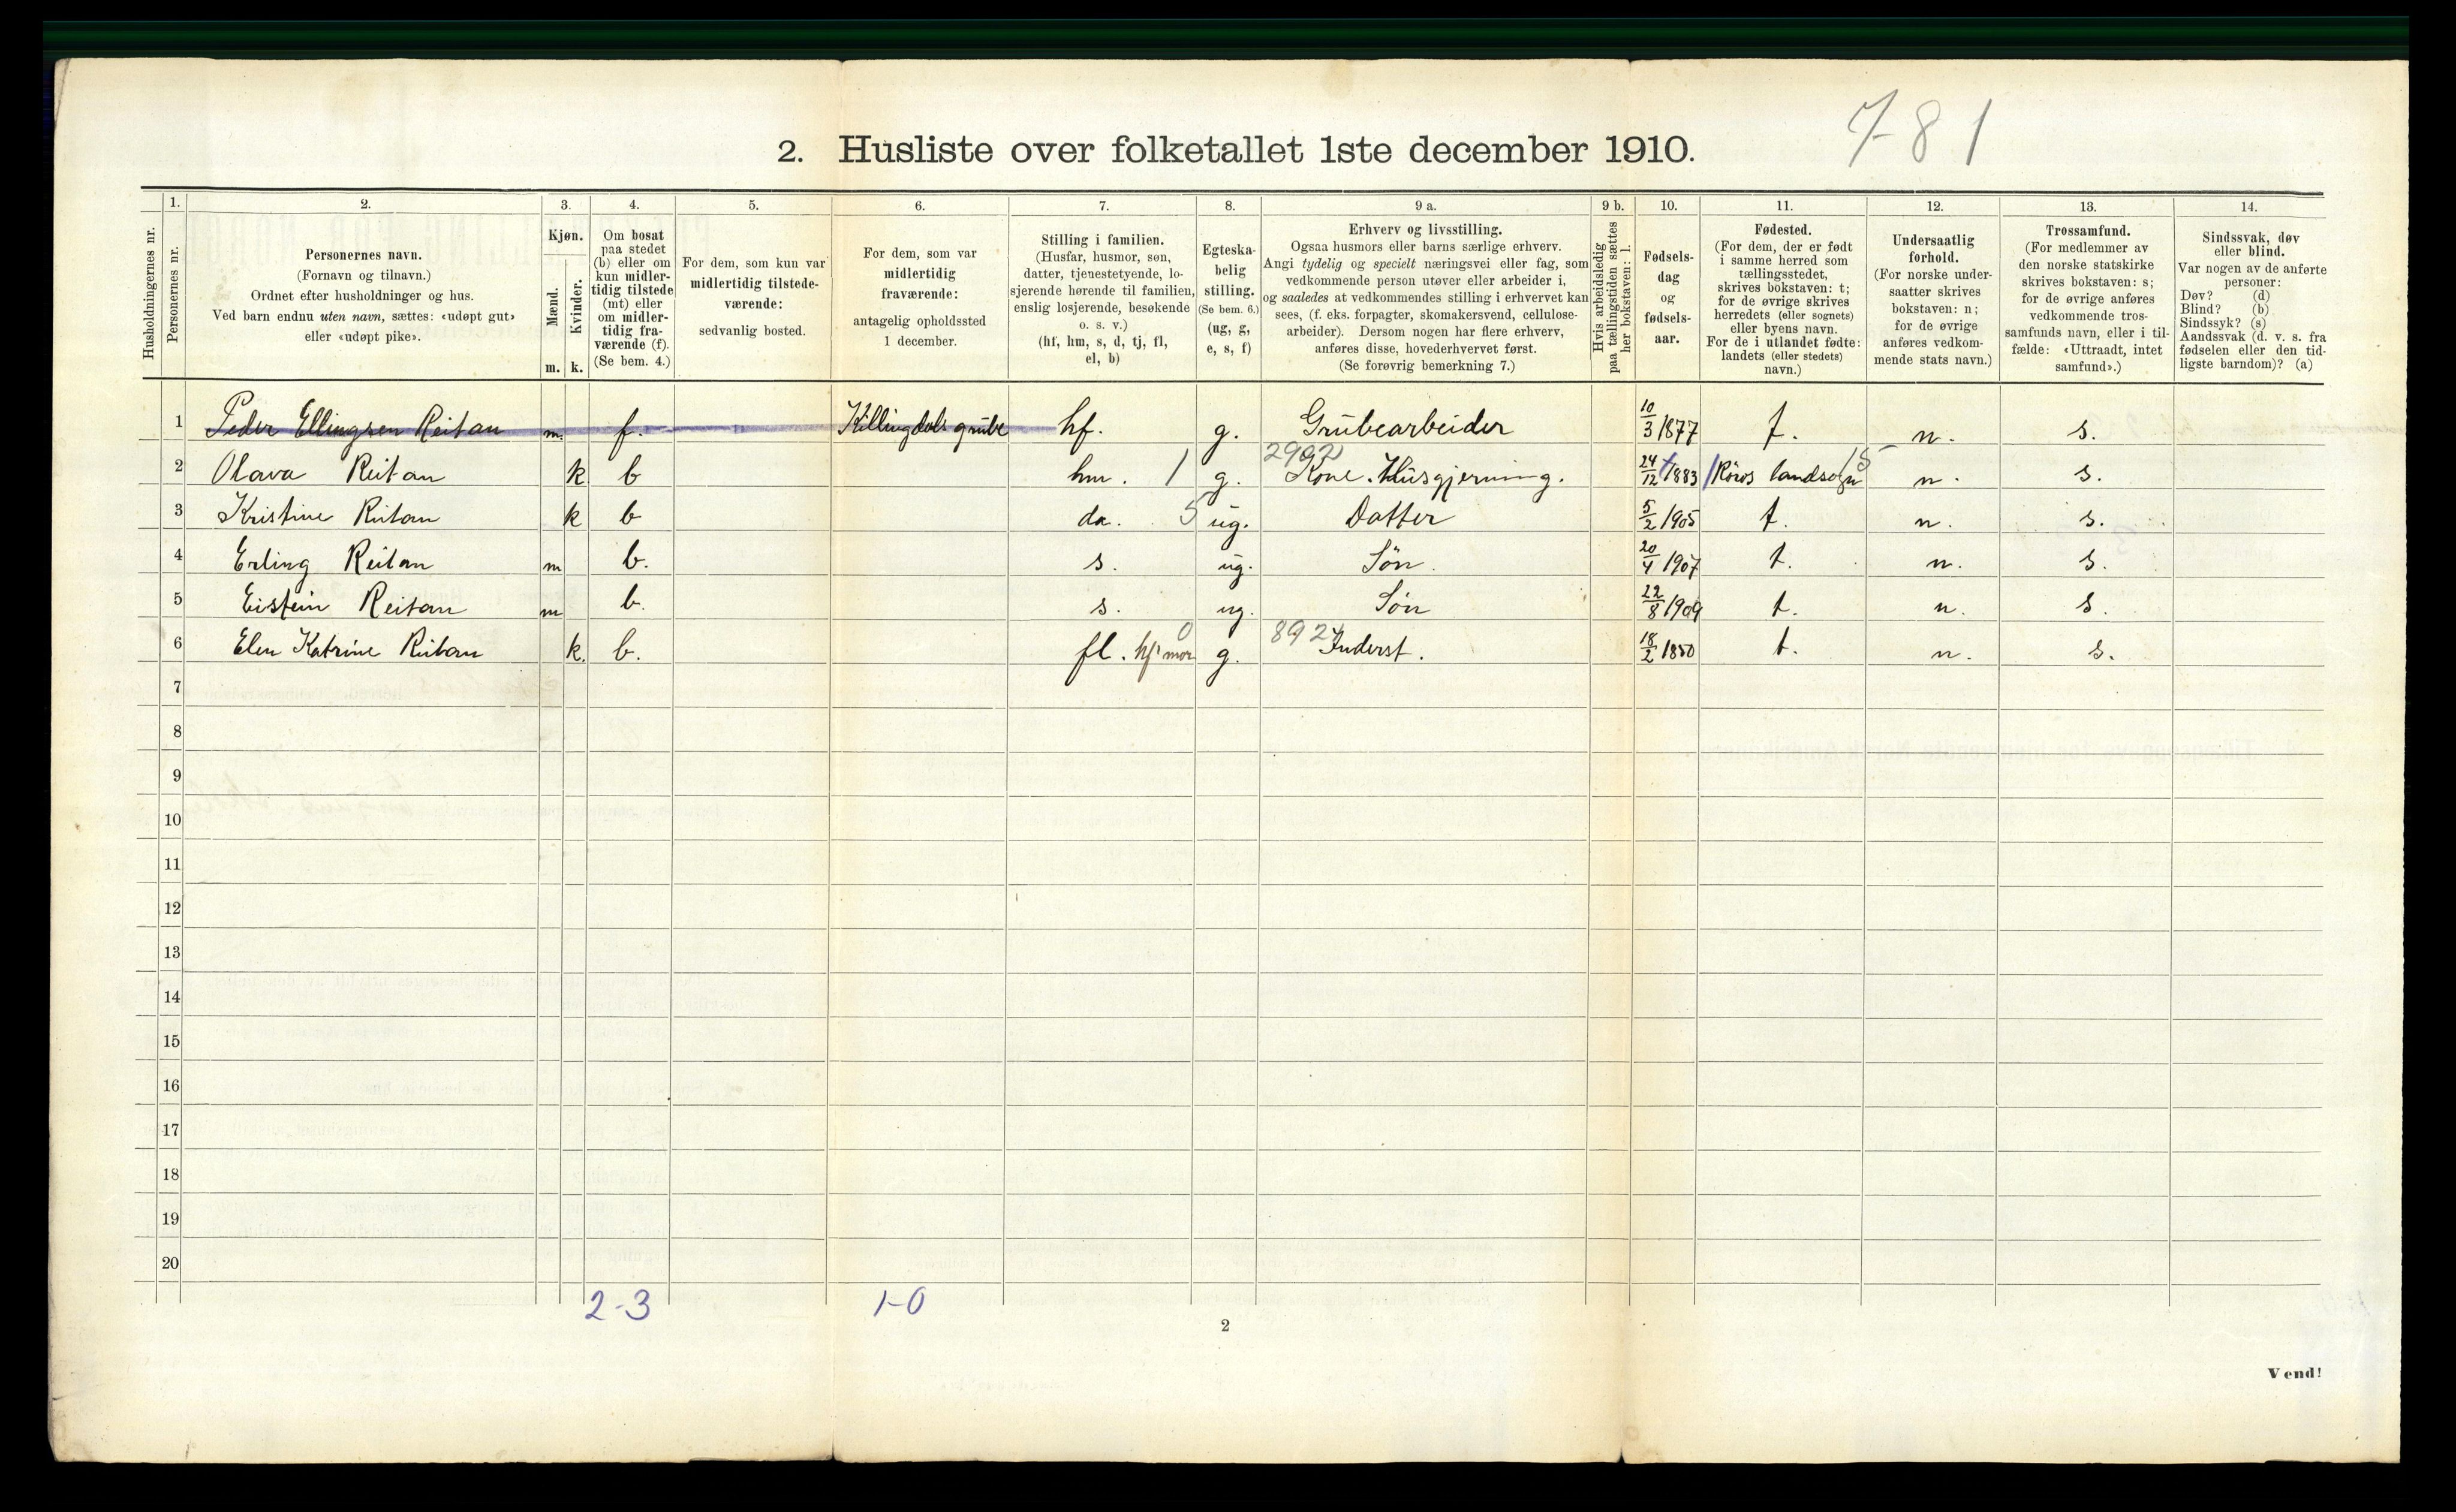 7-81
2. Husliste over folketallet 1ste december 1910.
Husholdningernes nr.
1. Personernes nr.
2. Personernes navn.
(Fornavn og tilnavn.)
Ordnet efter husholdninger og hus.
Ved barn endnu uten navn, sættes: «udøpt gut»
eller «udøpt pike».
3. Kjøn.
Mænd. m.
Kvinder. k.
4. Om bosat
paa stedet
(b) eller om
kun midler-
tidig tilstede
(mt) eller
om midler-
tidig fra-
værende (f).
(Se bem. 4.)
5. For dem, som kun var
midlertidig tilstede-
værende:
sedvanlig bosted.
6. For dem, som var
midlertidig
fraværende:
antagelig opholdssted
1 december.
7. Stilling i familien.
(Husfar, husmor, søn,
datter, tjenestetyende, lo-
sjerende hørende til familien,
enslig losjerende, besøkende
o. s. v.)
(hf, hm, s, d, tj, fl,
el, b)
8. Egteska-
belig
stilling.
(Se bem. 6.)
(ug, g,
e, s, f)
9 a. Erhverv og livsstilling.
Ogsaa husmors eller barns særlige erhverv.
Angi tydelig og specielt næringsvei eller fag, som
vedkommende person utøver eller arbeider i,
og saaledes at vedkommendes stilling i erhvervet kan
sees, (f. eks. forpagter, skomakersvend, cellulose-
arbeider). Dersom nogen har flere erhverv,
anføres disse, hovederhvervet først.
(Se forøvrig bemerkning 7.)
9 b. Hvis arbeidsledig
paa tællingstiden sættes
her bokstaven: l.
10. Fødsels-
dag
og
fødsels-
aar.
11. Fødested.
(For dem, der er født
i samme herred som
tællingsstedet,
skrives bokstaven: t;
for de øvrige skrives
herredets (eller sognets)
eller byens navn.
For de i utlandet fødte:
landets (eller stedets)
navn.)
12. Undersaatlig
forhold.
(For norske under-
saatter skrives
bokstaven: n;
for de øvrige
anføres vedkom-
mende stats navn.)
13. Trossamfund.
(For medlemmer av
den norske statskirke
skrives bokstaven: s;
for de øvrige anføres
vedkommende tros-
samfunds navn, eller i til-
fælde: «Uttraadt, intet
samfund».)
14. Sindssvak, døv
eller blind.
Var nogen av de anførte
personer:
Døv? (d)
Blind? (b)
Sindssyk? (s)
Aandssvak (d. v. s. fra
fødselen eller den tid-
ligste barndom)? (a)
1 Peder Ellingsen Reitan m. f. Killingdals grube hf. g. Grubearbeider 10/3 1877 t. n. s.
2 Olava Reitan k b hm. 1 g. 2902 Kone. Husgjerning. 24/12 1883 Röros landsogn 15 n. s.
3 Kristine Reitan k b da. 5 ug. Datter 5/2 1905 t. n. s.
4 Erling Reitan m b. s. ug. Sön. 20/4 1907 t. n. s.
5 Eistein Reitan m b. s. ug. Sön 22/8 1909 t. n. s.
6 Elen Katrine Reitan k. b. fl. hf's mor 0 g. 892 Inderst. 18/2 1850 t. n. s.
7
8
9
10
11
12
13
14
15
16
17
18
19
20
2-3 1-0
2
Vend!